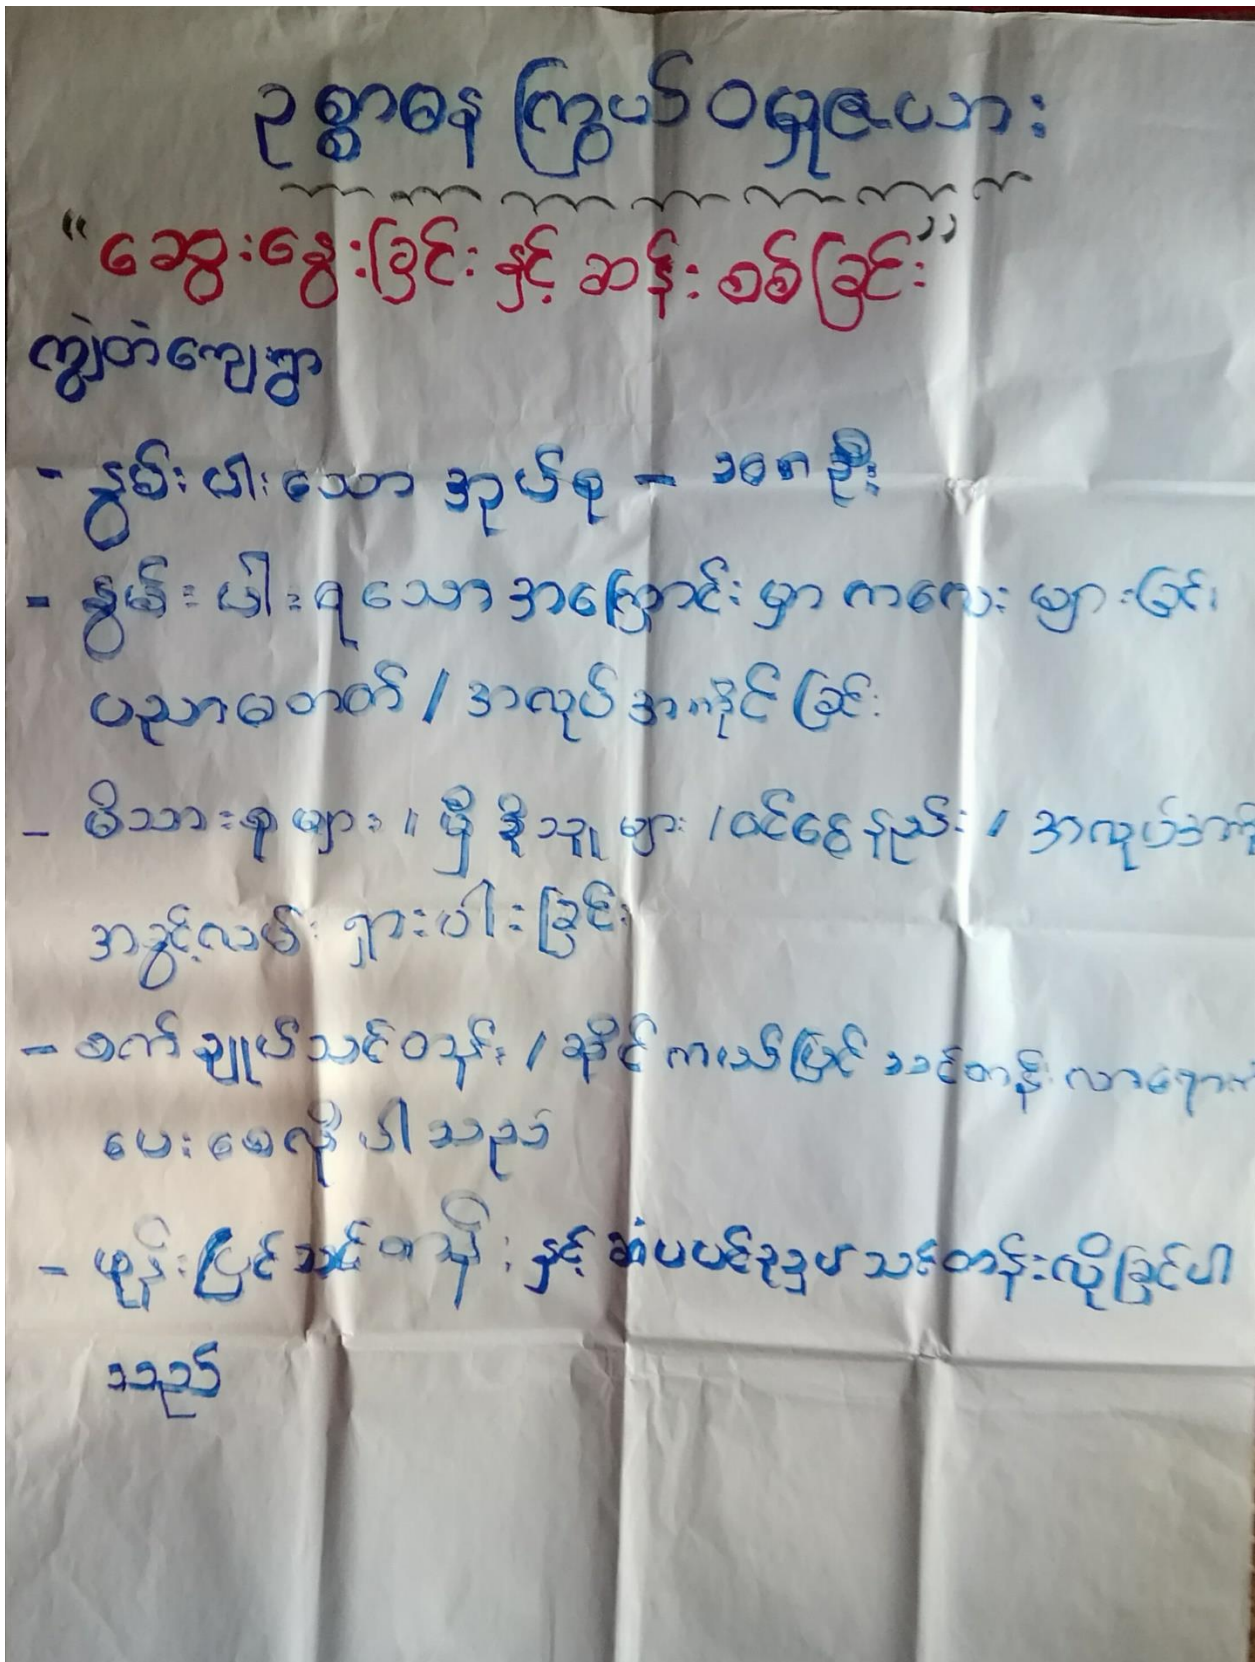 ဥစ္စာဓန ကြွယ်ဝမှုဇယား
“ဆွေးနွေးခြင်း နှင့် ဆန်းစစ်ခြင်း”
ကျွဲတဲကျေးရွာ
- နွမ်းပါးသော အုပ်စု - ၁၀၈ ဦး
- နွမ်းပါးရသောအကြောင်းမှာ ကလေးများခြင်း
ပညာမတတ် / အလုပ်အကိုင်ခြင်း
- မိသားစုများ ။ မှီခိုသူများ / ဝင်ငွေနည်း / အလုပ်အကို
အခွင့်လမ်း ရှားပါးခြင်း
- စက်ချုပ်သင်တန်း / ဆိုင်ကယ်ပြင်သင်တန်း လာရောက်
ပေးစေလိုပါသည်
- ဖုန်းပြင်သင်တန်း နှင့် ဆံပင်ညှပ်သင်တန်းလိုခြင်ပါ
သည်